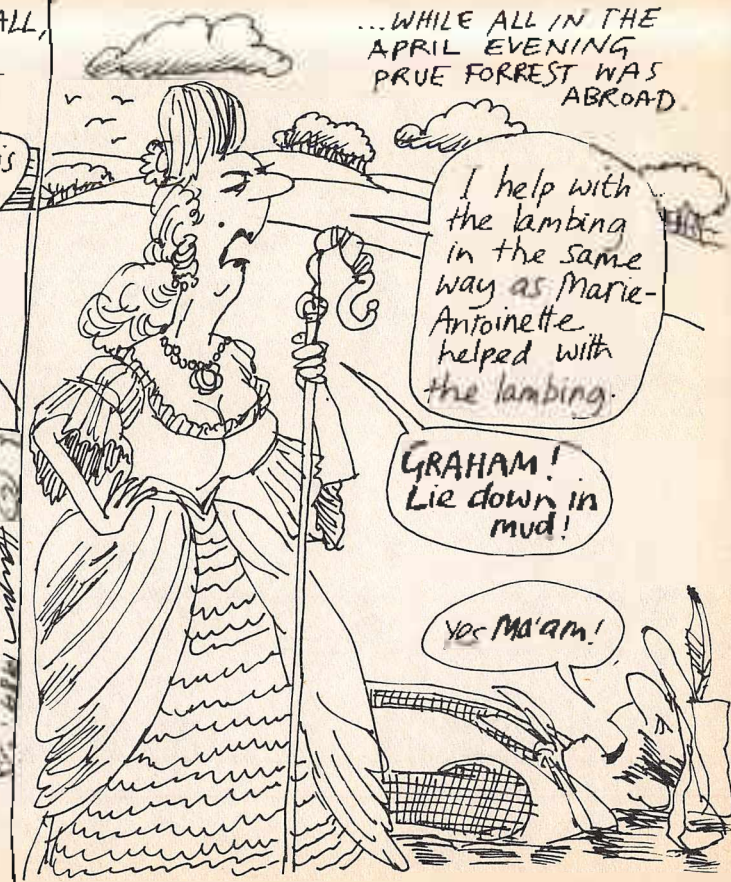 ALL,
is
...WHILE ALL IN THE
APRIL EVENING
PRUE FORREST WAS
ABROAD
I help with
the lambing
in the same
way as Marie-
Antoinette
helped with
the lambing.
GRAHAM!
Lie down in
mud!
Yes Ma'am!